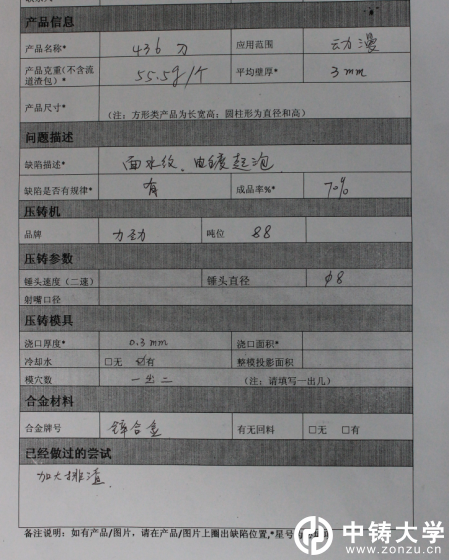 产品信息
产品名称* 436刀 应用范围 动漫
产品克重(不含流道渣包)* 55.5g/个 平均壁厚* 3mm
产品尺寸* (注:方形类产品为长宽高;圆柱形为直径和高)
问题描述
缺陷描述* 面水纹、电镀起泡
缺陷是否有规律* 有 成品率%* 70%
压铸机
品牌 力劲 吨位 88
压铸参数
锤头速度(二速) 锤头直径 φ8
射嘴口径
压铸模具
浇口厚度* 0.3mm 浇口面积*
冷却水 □无 ☑有 整模投影面积
模穴数 一出二 (注:请填写一出几)
合金材料
合金牌号 锌合金 有无回料 □无 □有
已经做过的尝试
加大排渣
备注说明:如有产品/图片,请在产品/图片上圈出缺陷位置,*星号
中铸大学
www.zonzu.cn